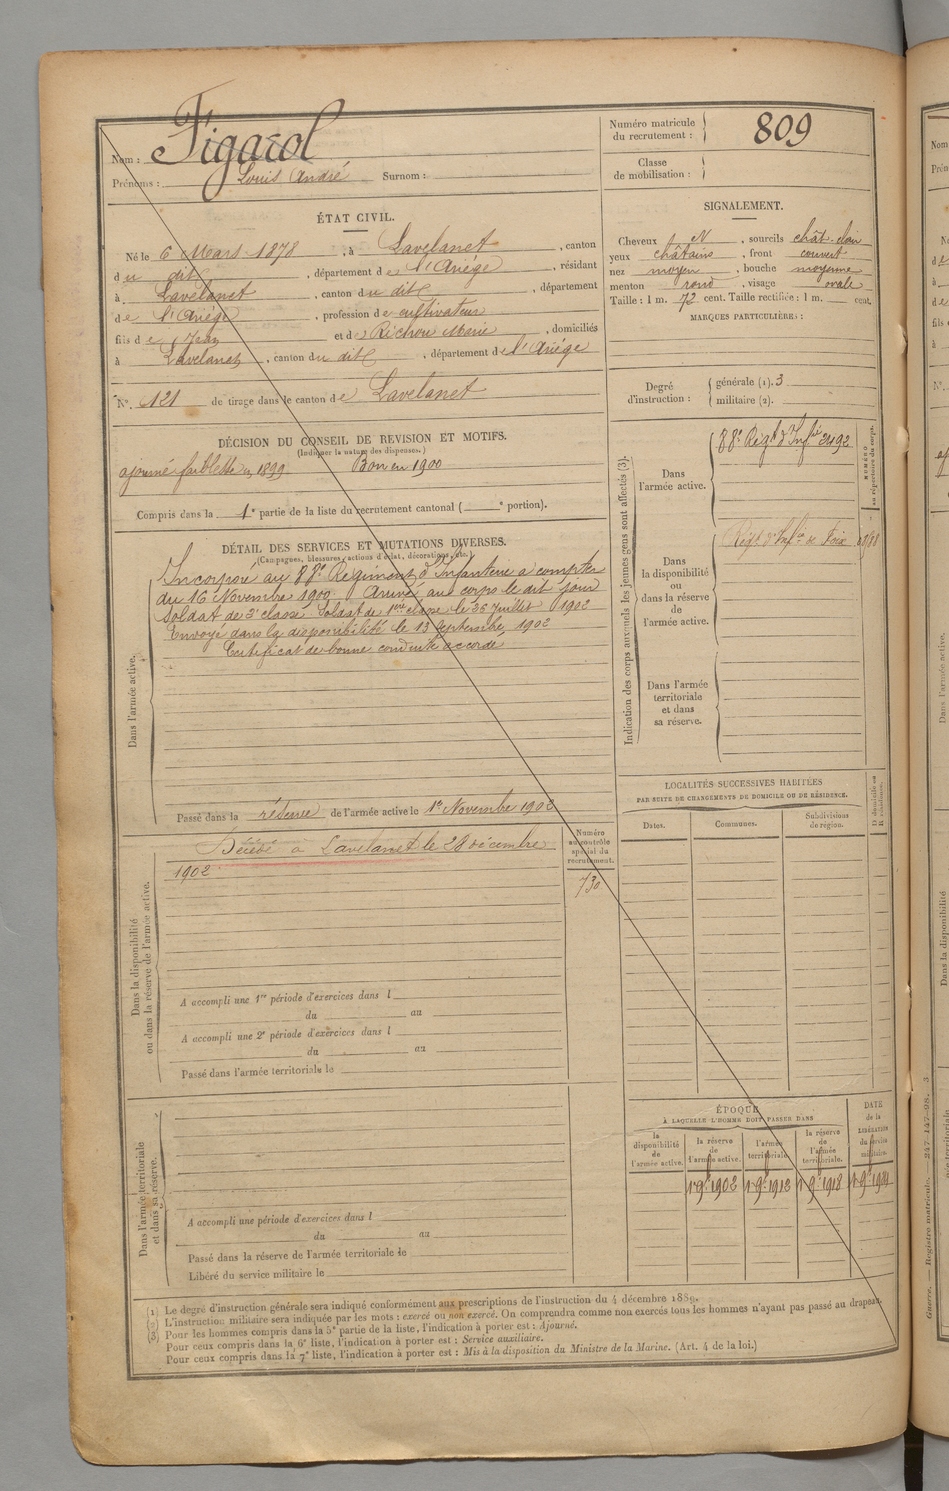 Nom : Figarol
Prénoms : Louis André Surnom :
Numéro matricule
du recrutement :
809
Classe
de mobilisation :
ÉTAT CIVIL.
Né le 6 Mars 1878, à Lavelanet, canton
du dit, département de l'Ariége, résidant
à Lavelanet, canton du dit, département
de l'Ariége, profession de cultivateur
fils de Jean et de Richou Marie, domiciliés
à Lavelanet, canton du dit, département de l'Ariége
N°. 121 de tirage dans le canton de Lavelanet
SIGNALEMENT.
Cheveux N, sourcils chât. clair
yeux châtains, front couvert
nez moyen, bouche moyenne
menton rond, visage ovale
Taille : 1 m. 72 cent. Taille rectifiée : 1 m. cent.
MARQUES PARTICULIÈRES :
Degré
d'instruction :
générale (1). 3
militaire (2).
DÉCISION DU CONSEIL DE REVISION ET MOTIFS.
(Indiquer la nature des dispenses.)
ajourné faiblesse en 1899 Bon en 1900
Compris dans la 1e partie de la liste du recrutement cantonal ( e portion).
DÉTAIL DES SERVICES ET MUTATIONS DIVERSES.
(Campagnes, blessures, actions d'éclat, décorations, etc.)
Dans l'armée active.
Incorporé au 88e Régiment d'Infanterie à compter
du 16 Novembre 1900. Arrivé au corps le dit jour
Soldat de 2e classe. Soldat de 1ère classe le 26 Juillet 1902
Envoyé dans la disponibilité le 13 septembre 1902
Certificat de bonne conduite accordé
Passé dans la réserve de l'armée active le 1er Novembre 1902
Indication des corps auxquels les jeunes gens sont affectés (3).
Dans
l'armée active.
88e Régt d'Infie 2492
NUMÉRO
au répertoire du corps.
Dans
la disponibilité
ou
dans la réserve
de
l'armée active.
Régt d'Infie de Foix
Dans l'armée
territoriale
et dans
sa réserve.
LOCALITÉS SUCCESSIVES HABITÉES
PAR SUITE DE CHANGEMENTS DE DOMICILE OU DE RÉSIDENCE.
Dates.
Communes.
Subdivisions
de région.
D. domicile ou
R. résidence.
Dans la disponibilité
ou dans la réserve de l'armée active.
Décédé à Lavelanet le 28 décembre
1902
Numéro
au contrôle
spécial du
recrutement.
730
A accompli une 1re période d'exercices dans l
du au
A accompli une 2e période d'exercices dans l
du au
Passé dans l'armée territoriale le
Dans l'armée territoriale
et dans sa réserve.
A accompli une période d'exercices dans l
du au
Passé dans la réserve de l'armée territoriale le
Libéré du service militaire le
ÉPOQUE
À LAQUELLE L'HOMME DOIT PASSER DANS
la
disponibilité
de
l'armée active.
la réserve
de
l'armée active.
l'armée
territoriale.
la réserve
de
l'armée
territoriale.
DATE
de la
LIBÉRATION
du service
militaire.
1 9bre 1902 1 9bre 1912 1 9bre 1918
(1) Le degré d'instruction générale sera indiqué conformément aux prescriptions de l'instruction du 4 décembre 1889.
(2) L'instruction militaire sera indiquée par les mots : exercé ou non exercé. On comprendra comme non exercés tous les hommes n'ayant pas passé au drapeau.
(3) Pour les hommes compris dans la 5e partie de la liste, l'indication à porter est : Ajourné.
Pour ceux compris dans la 6e liste, l'indication à porter est : Service auxiliaire.
Pour ceux compris dans la 7e liste, l'indication à porter est : Mis à la disposition du Ministre de la Marine. (Art. 4 de la loi.)
Guerre. — Registre matricule. — 247-147-98. 3